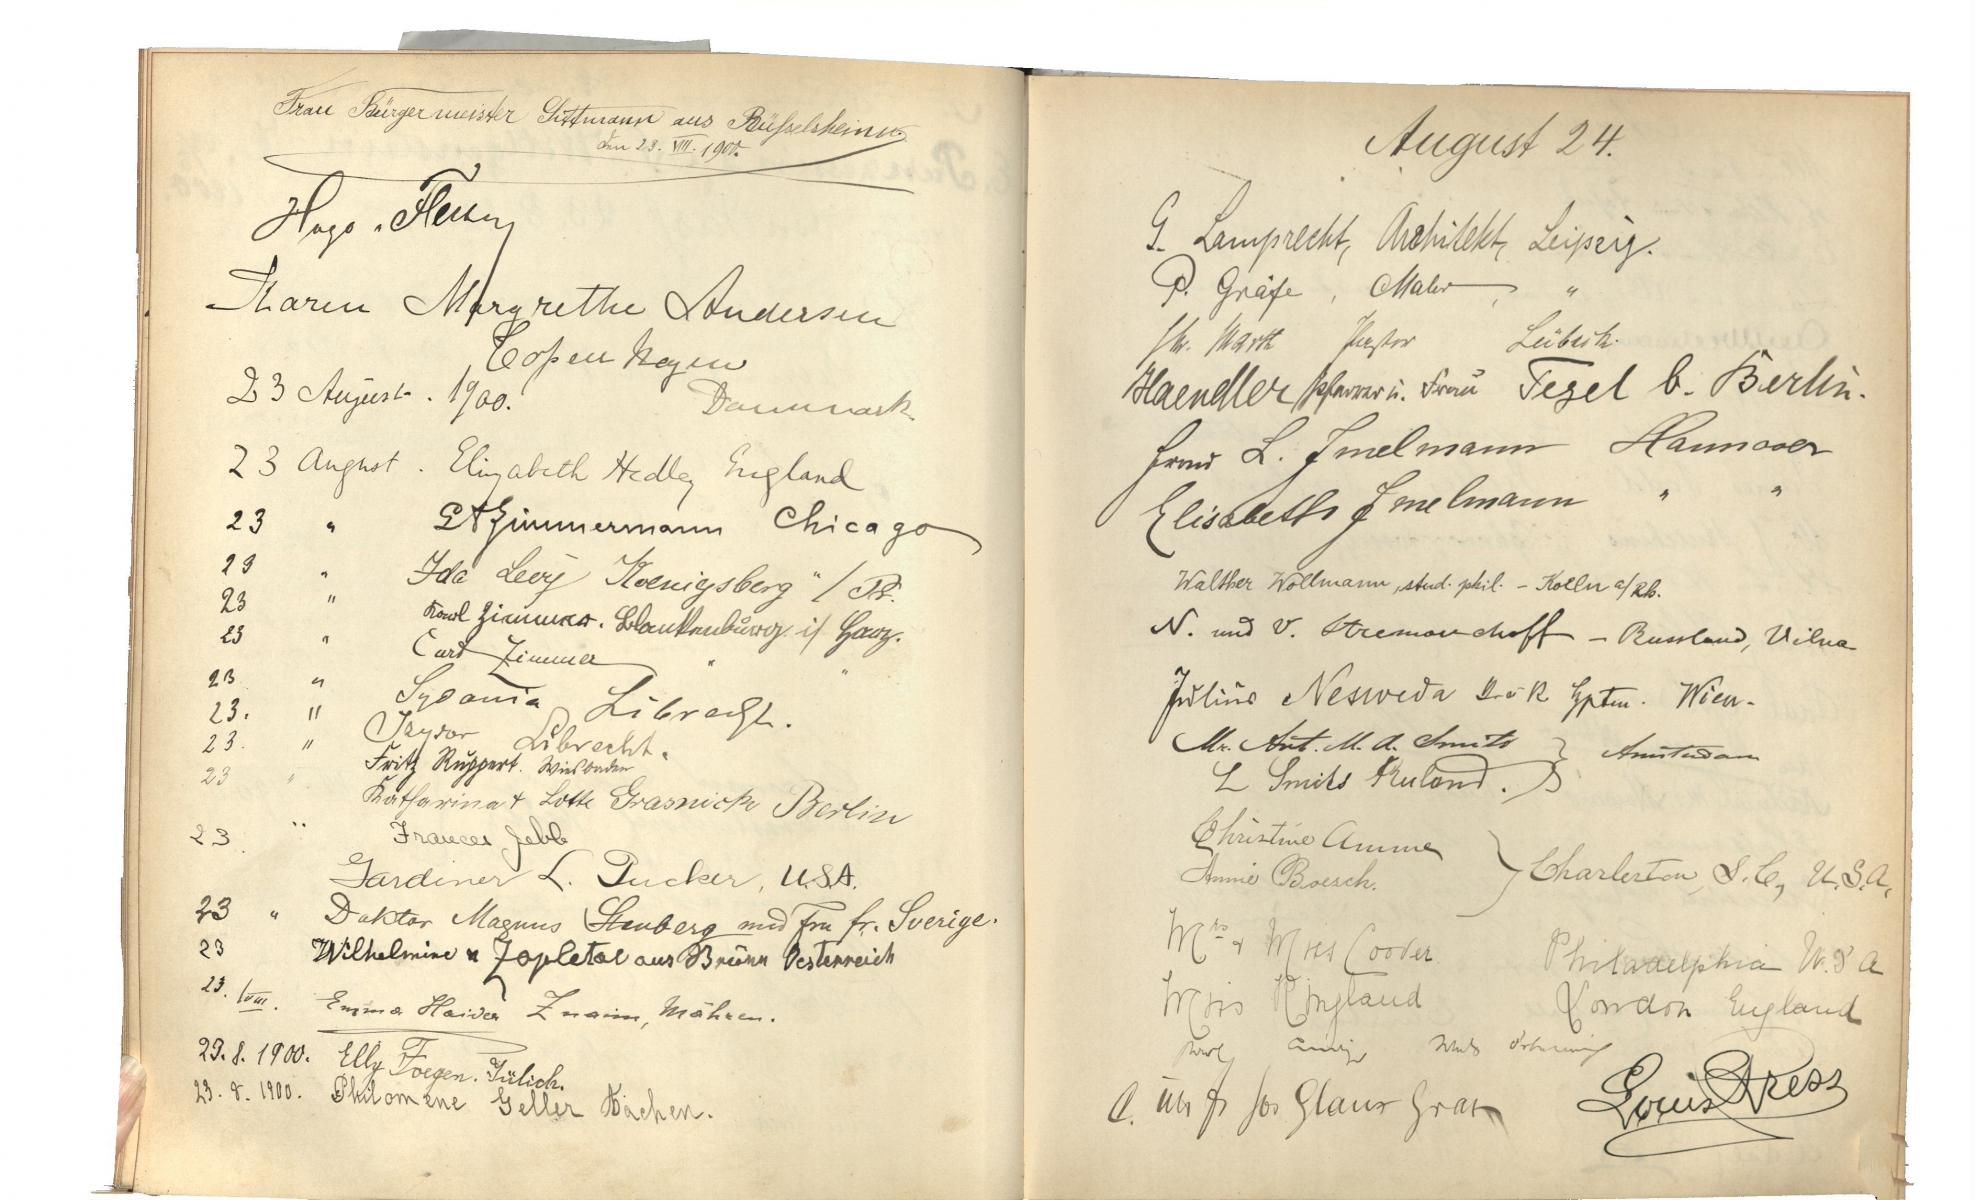 Frau Bürgermeister Sittmann aus Rüsselsheim
den 23. VIII. 1900.
Hugo
Karen Margrethe Andersen
Copenhagen
23 August. 1900. Danmark
23 August. Elizabeth Hedley England
23 " Zimmermann Chicago
23 " Ida Levy Koenigsberg i/Pr.
23 " Karl Zimmer. Blankenburg i/Harz.
23 " Curd Zimmer " "
23 " Sydonia Librecht.
23. " Isydor Librecht.
23. " Fritz Ruppert. Wiesbaden
23 " Katharina + Lotte Grasnick Berlin
23 " Frances Jebb
Gardiner L. Tucker, U.S.A.
23 " Doktor Magnus Stenberg med Fru fr. Sverige.
23 Wilhelmine Zapletal aus Brünn Oesterreich
23./VIII. Emma Haider Znaim, Mähren.
23.8.1900. Elly Foegen. Jülich.
23.8.1900. Philomene Geller Aachen.
August 24.
G. Lamprecht, Architekt, Leipzig.
P. Gräfe, Maler, "
Pastor
Haendler Pfarrer u. Frau Tegel b. Berlin.
Frau L. Imelmann Hannover
Elisabeth Imelmann " "
Walther Wollmann, stud. phil. - Koeln a/Rh.
N. und V. Stremouchoff - Russland, Vilna
Julius Nesweda k. u. k. Hptm. Wien.
Mr. Ant. M. A. Smits } Amsterdam
L Smits Ruland. }
Christine Amme
Annie Boesch. } Charleston, S.C., U.S.A.
Mrs + Miss Coover. Philadelphia U.S.A
Miss Kingland London England
Louis Dress